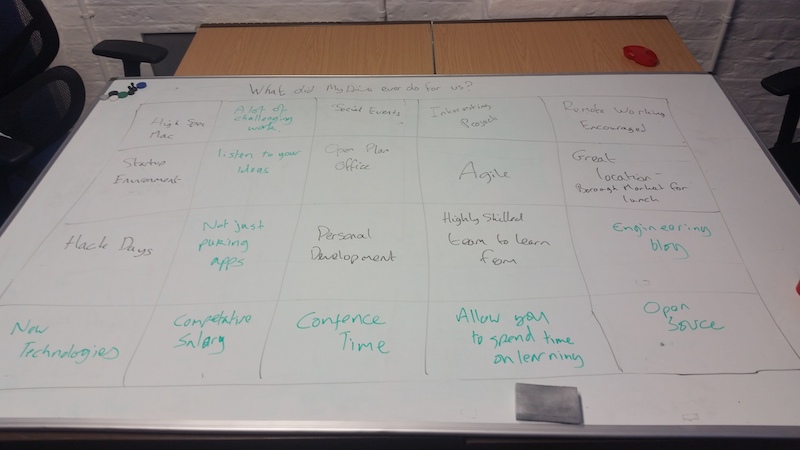 What did MyDrive ever do for us?
High Spec
Mac
A lot of
challenging
work.
Social Events
Interesting
Project
Remote Working
Encouraged
Startup
Environment
listen to your
ideas
Open Plan
Office
Agile
Great
location -
Borough Market for
lunch
Hack Days
Not just
puking
apps
Personal
Development
Highly Skilled
team to learn
from
Engineering
blog
New
Technologies
Competative
Salary
Confence
Time
Allow you
to spend time
on learning
Open
Source